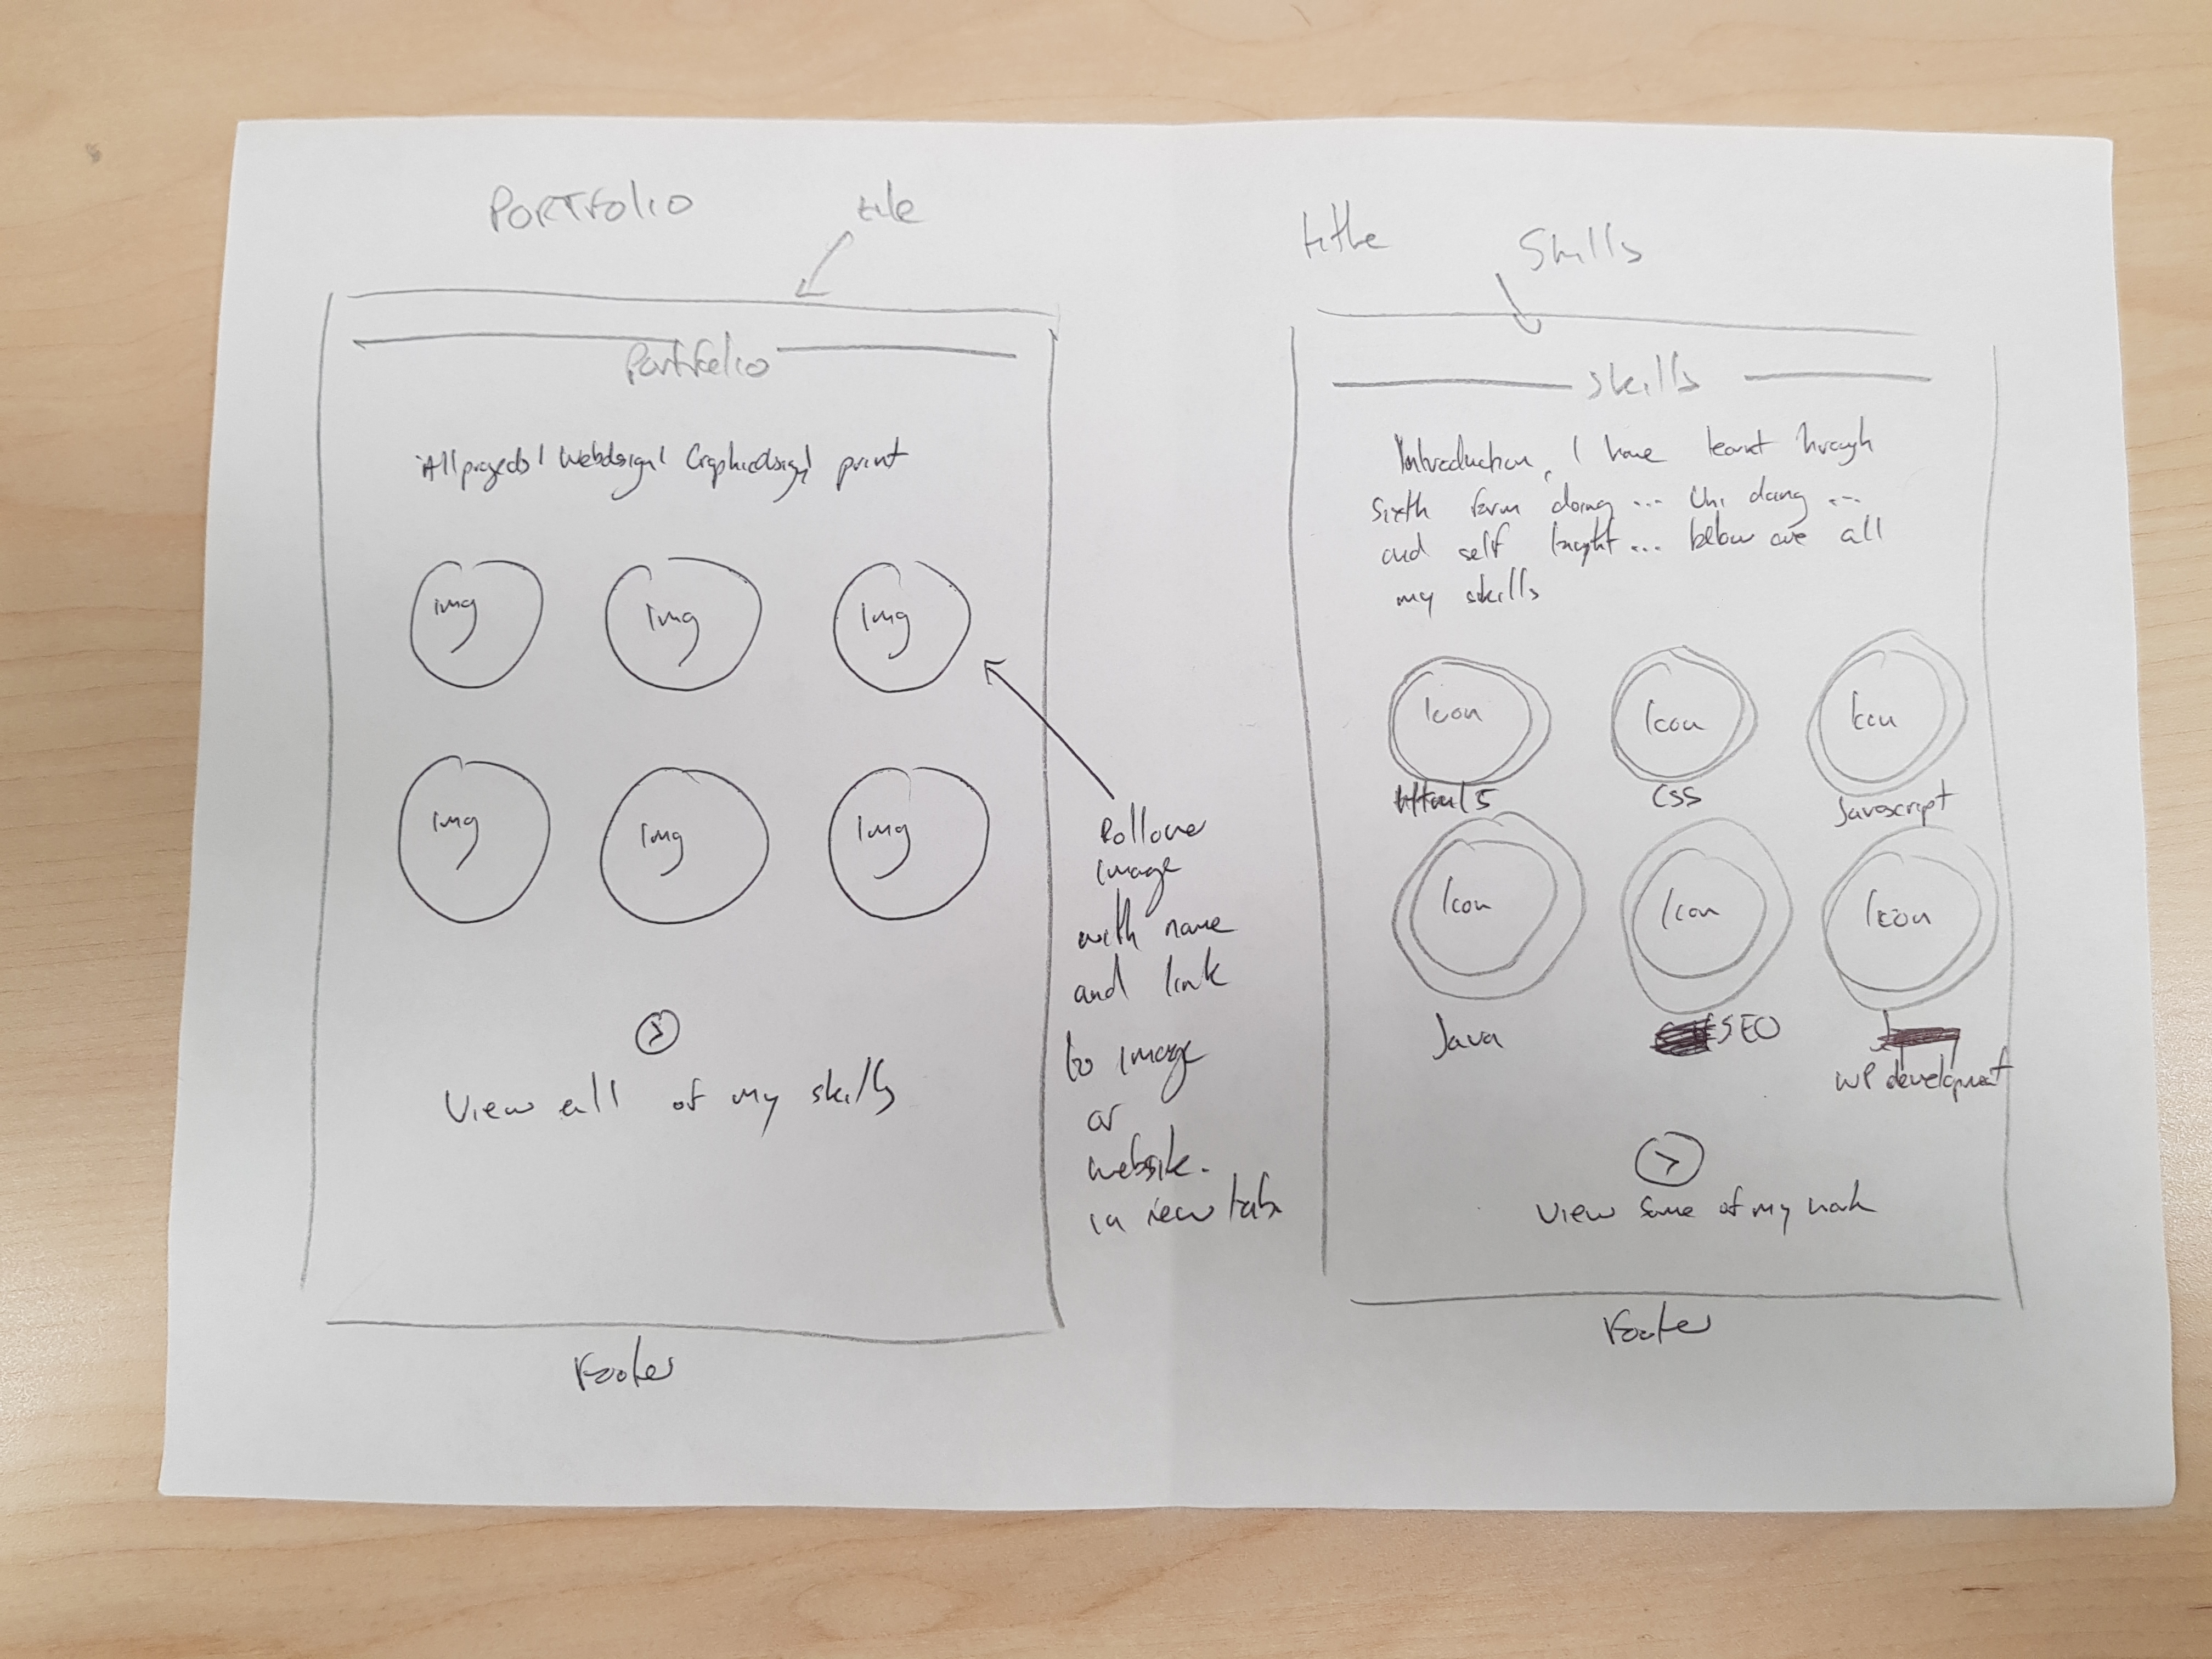 PORTFOLIO
title
Portfolio
All projects | Webdesign | Graphicdesign | print
img img img
img img img
Rollover
image
with name
and link
to image
or
website.
in new tab
View all of my skills
Footer
title Skills
Skills
Introduction, I have learnt through
sixth form doing ... Uni doing ...
and self taught ... below are all
my skills
Icon Icon Icon
Html5 CSS Javascript
Icon Icon Icon
Java SEO
WP development
>
View some of my work
Footer